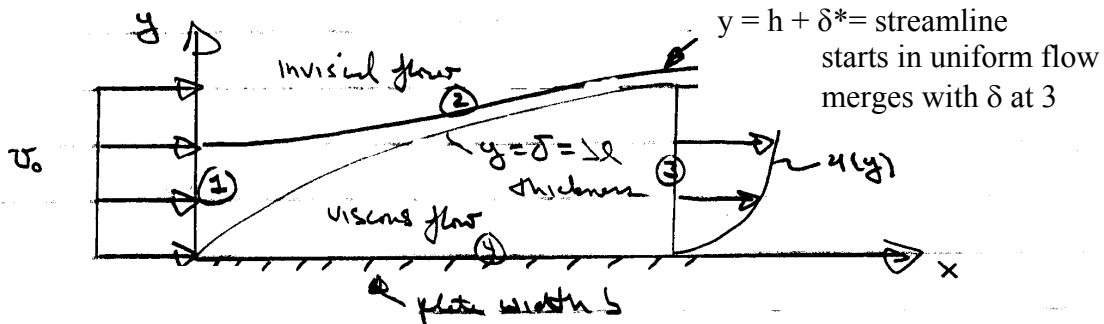 y
y = h + δ*= streamline
starts in uniform flow
merges with δ at 3
inviscid flow
2
v₀
1
y = δ = BL
thickness
3
u(y)
viscous flow
4
x
plate width b